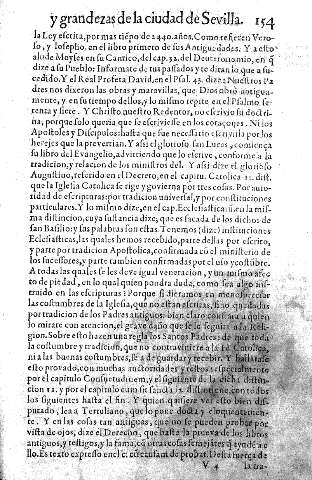 y grandezas de la ciudad de Sevilla. 154
la Ley escrita, por mas tiẽpo de 2440. años. Como refieren Vero-
so, y Iosepho, en el libro primero de sus Antiguedades. Y a esto
alude Moyses en su Cantico, del cap. 32. del Deuteronomio, en q̃
dize a su Pueblo: Informate de tus passados y te diran lo que a su-
cedido. Y el Real Profeta David, en el Psal. 43. dize: Nuestros Pa
dres nos dixeron las obras, y maravillas, que Dios obrò antigua-
mente, y en su tiempo dellos, y lo mismo repite en el Psalmo se-
tenta y siete. Y Christo nuestro Redentor, no escrivio su doctri-
na, porque solo queria que se escriviesse en los coraçones. Ni los
Apostoles y Discipulos: hasta que fue necessario escrivirla por los
hereges que la pervertian. Y assi el glorioso san Lucas, comiença
su libro del Evangelio, advirtiendo que lo escrive, conforme a la
tradicion, y relacion de los ministros del. Y assi dize el glorioso
Augustino, referido en el Decreto, en el capitu. Catolica 11. dist.
que la Iglesia Catolica se rige y govierna por tres cosas. Por auto-
ridad de escripturas: por tradicion universal, y por constituciones
particulares. Y lo mismo dize, en el cap. Ecclesiasticarũ. en la mis-
ma distincion, cuya sustancia dize, que es sacada de los dichos de
san Basilio: y sus palabras son estas. Tenemos (dize) instituciones
Eclesiasticas, las quales hemos recebido, parte dellas por escrito,
y parte por tradicion Apostolica, confirmada cõ el ministerio de
los sucessores, y parte tambien confirmadas por el uso y costũbre.
A todas las quales se les deve igual veneracion, y un mismo afec-
to de piedad, en lo qual quien pondra duda, como sea algo ins-
truido en las escripturas? Porque si dexamos en menospreciar
las costumbres de la Iglesia, que no estan escritas, sino quedadas
por tradicion de los Padres antiguos: bien claro constara a quien
lo mirare con atencion, el grave daño que se le seguira a la Reli-
gion. Sobre esto hazen una regla los Santos Padres: de que toda
la costumbre y tradicion, que no contraviniere a la Fè Catolica,
ni a las buenas costumbres, se a de guardar y recebir. Y hallarase
esto provado, con muchas autoridades y testos: especialmente
por el capitulo
los siguientes hasta el fin. Y quien quisiere ver esto bien dis-
putado, lea a Tertuliano, que lo pone docta y eloquentemen-
te. Y en las cosas tan antiguas, que no se pueden probar por
vista de ojos, dize el Derecho, que basta la prueva de los libros
antiguos, y testigos, y la fama, cõ otras cosas semejãtes q̃ ayudẽ a e-
llo. Es texto expresso en el
V 4 la tra-